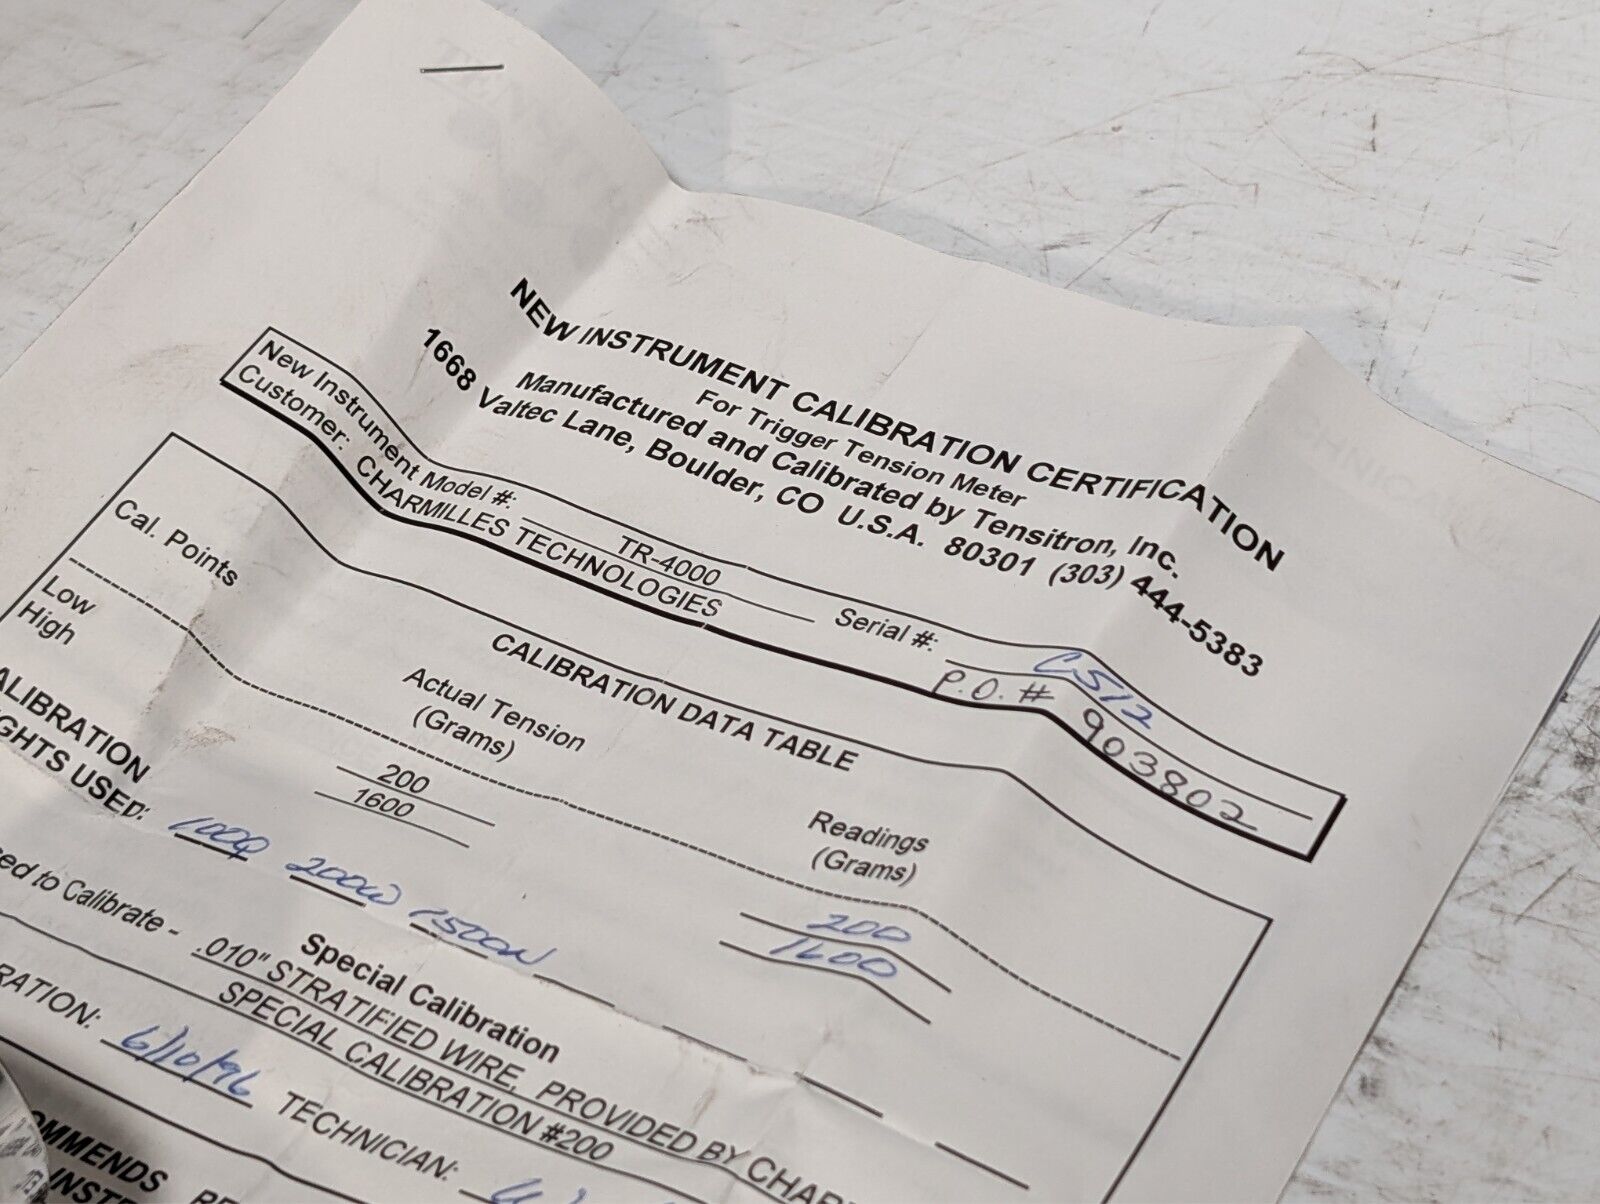 NEW INSTRUMENT CALIBRATION CERTIFICATION
For Trigger Tension Meter
Manufactured and Calibrated by Tensitron, Inc.
1668 Valtec Lane, Boulder, CO U.S.A. 80301 (303) 444-5383
New Instrument Model #: TR-4000 Serial #: C512
Customer: CHARMILLES TECHNOLOGIES P.O. # 903802
CALIBRATION DATA TABLE
Cal. Points Actual Tension (Grams) Readings (Grams)
Low 200 200
High 1600 1600
ALIBRATION
GHTS USED: 100 200 1500
Special Calibration
ed to Calibrate - .010" STRATIFIED WIRE, PROVIDED BY CHAR
SPECIAL CALIBRATION #200
RATION: 6/10/96 TECHNICIAN:
OMMENDS
INST